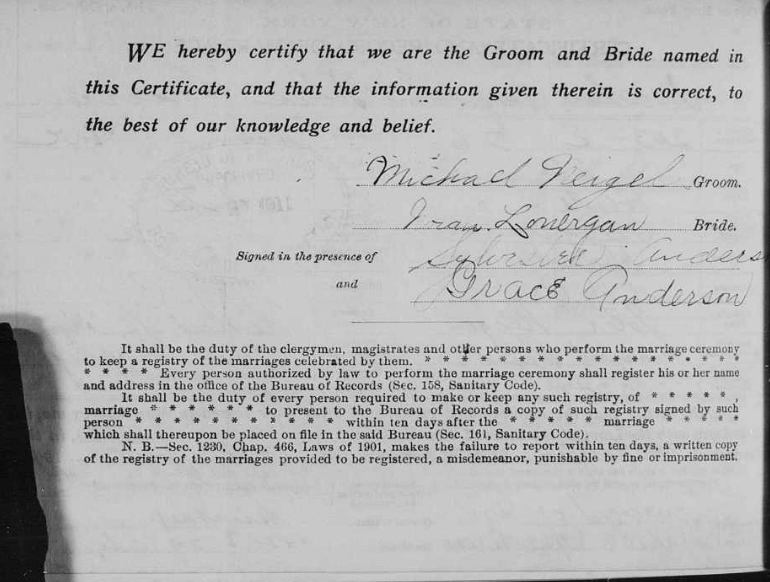 WE hereby certify that we are the Groom and Bride named in
this Certificate, and that the information given therein is correct, to
the best of our knowledge and belief.
Michael Neigel Groom.
Lonergan Bride.
Signed in the presence of Sylvester Anders
and Grace Anderson
It shall be the duty of the clergymen, magistrates and other persons who perform the marriage ceremony
to keep a registry of the marriages celebrated by them. * * * * * * * * * * * * * * * * *
* * * * Every person authorized by law to perform the marriage ceremony shall register his or her name
and address in the office of the Bureau of Records (Sec. 158, Sanitary Code).
It shall be the duty of every person required to make or keep any such registry, of * * * * * ,
marriage * * * * * * to present to the Bureau of Records a copy of such registry signed by such
person * * * * * * * * * * * within ten days after the * * * * * marriage * * * * *
which shall thereupon be placed on file in the said Bureau (Sec. 161, Sanitary Code).
N. B.—Sec. 1230, Chap. 466, Laws of 1901, makes the failure to report within ten days, a written copy
of the registry of the marriages provided to be registered, a misdemeanor, punishable by fine or imprisonment.